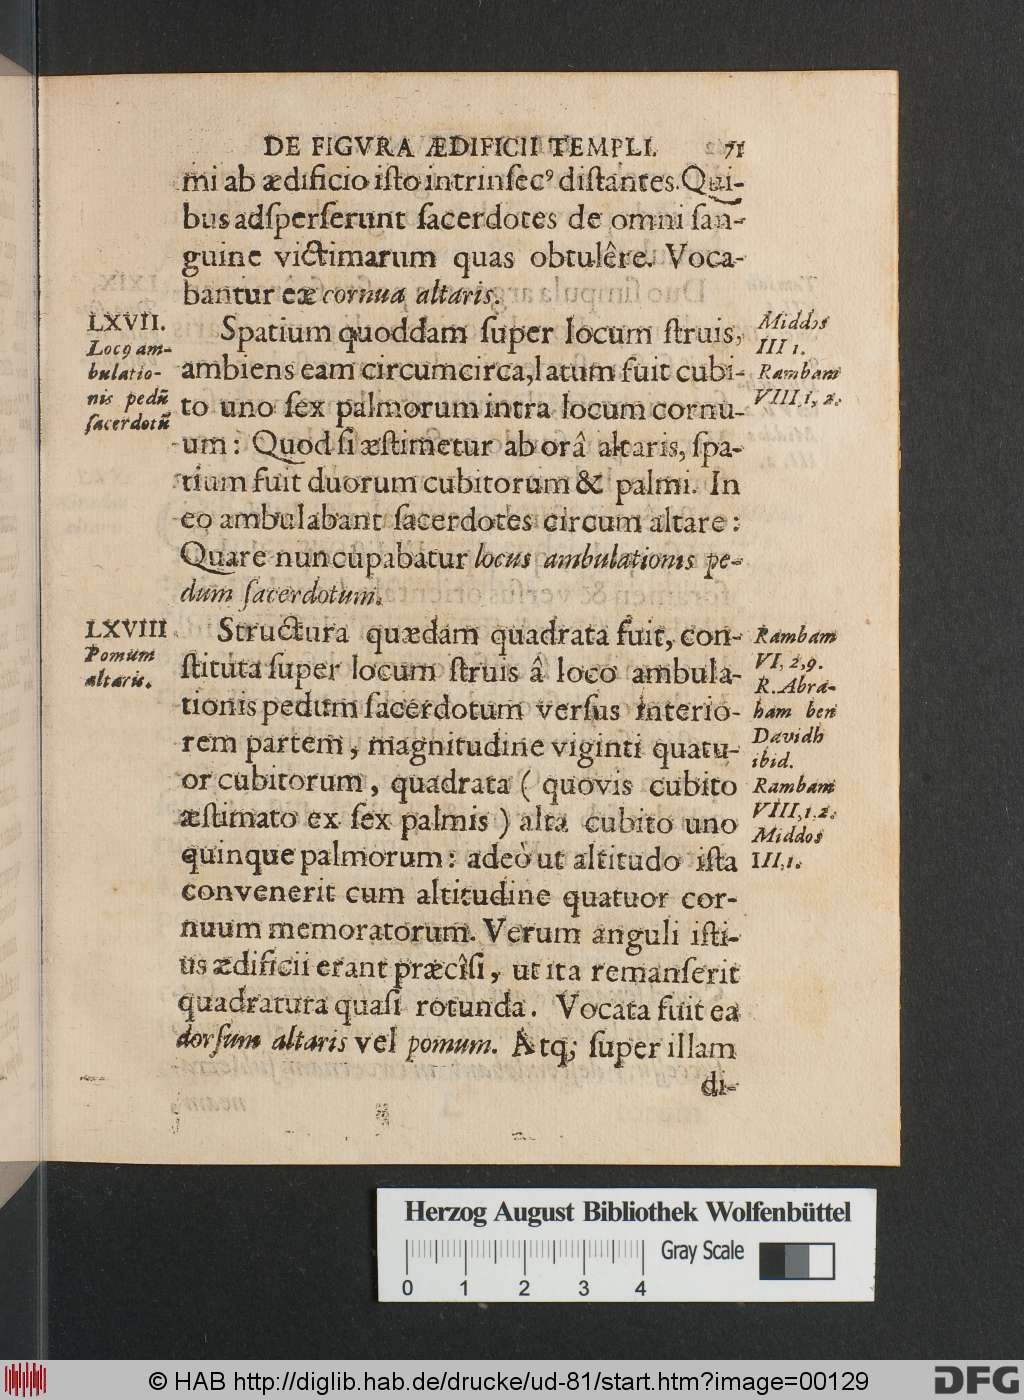 DE FIGVRA ÆDIFICII TEMPLI. 71
mi ab ædificio iſto intrinſecꝰ diſtantes. Qui-
bus adſperſerunt ſacerdotes de omni ſan-
guine victimarum quas obtulêre. Voca-
bantur eæ cornua altaris.
LXVII.
Locꝰ am-
bulatio-
nis pedũ
ſacerdotũ
Spatium quoddam ſuper locum ſtruis,
ambiens eam circumcirca, latum fuit cubi-
to uno ſex palmorum intra locum cornu-
um: Quod ſi æſtimetur ab orâ altaris, ſpa-
tium fuit duorum cubitorum & palmi. In
eo ambulabant ſacerdotes circum altare:
Quare nuncupabatur locus ambulationis pe-
dum ſacerdotum.
Middos
III 1.
Rambam
VIII, 1, 2.
LXVIII.
Pomum
altaris.
Structura quædam quadrata fuit, con-
ſtituta ſuper locum ſtruis â loco ambula-
tionis pedum ſacerdotum verſus interio-
rem partem, magnitudine viginti quatu-
or cubitorum, quadrata (quovis cubito
æſtimato ex ſex palmis) alta cubito uno
quinque palmorum: adeò ut altitudo iſta
convenerit cum altitudine quatuor cor-
nuum memoratorum. Verum anguli iſti-
us ædificii erant præcîſi, ut ita remanſerit
quadratura quaſi rotunda. Vocata fuit ea
dorſum altaris vel pomum. Atq; ſuper illam
di-
Rambam
VI, 2, 9.
R. Abra-
ham ben
Davidh
ibid.
Rambam
VIII, 1. 2.
Middos
III, 1.
Herzog August Bibliothek Wolfenbüttel
Gray Scale
0 1 2 3 4
© HAB http://diglib.hab.de/drucke/ud-81/start.htm?image=00129
DFG